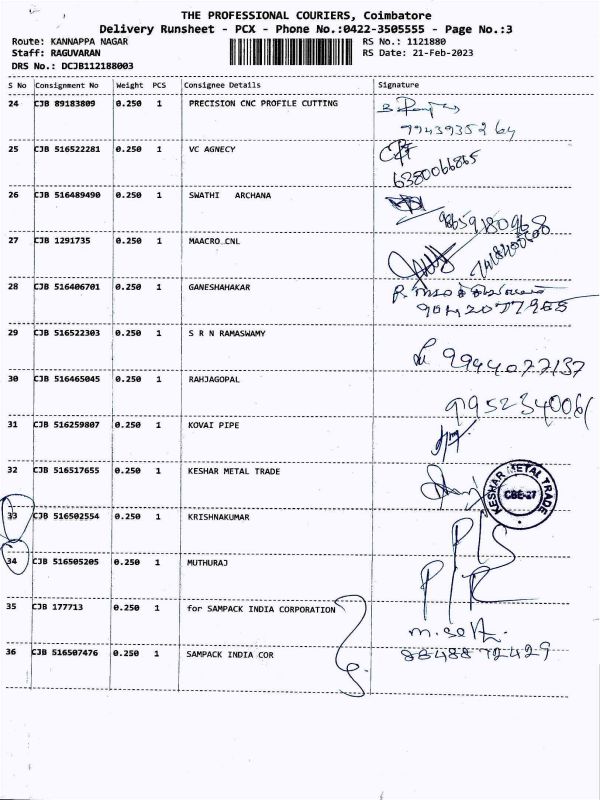 THE PROFESSIONAL COURIERS, Coimbatore
Delivery Runsheet - PCX - Phone No.:0422-3505555 - Page No.:3
Route: KANNAPPA NAGAR RS No.: 1121880
Staff: RAGUVARAN RS Date: 21-Feb-2023
DRS No.: DCJB112188003
S No Consignment No Weight PCS Consignee Details Signature
24 CJB 89183809 0.250 1 PRECISION CNC PROFILE CUTTING
7943935264
25 CJB 516522281 0.250 1 VC AGNECY
6380066865
26 CJB 516489490 0.250 1 SWATHI ARCHANA
98659180968
27 CJB 1291735 0.250 1 MAACRO CNL
28 CJB 516406701 0.250 1 GANESHAHAKAR
9042077965
29 CJB 516522303 0.250 1 S R N RAMASWAMY
9944077137
30 CJB 516465045 0.250 1 RAHJAGOPAL
9952340061
31 CJB 516259807 0.250 1 KOVAI PIPE
32 CJB 516517655 0.250 1 KESHAR METAL TRADE
KESHAR METAL TRADE
CBE-27
33 CJB 516502554 0.250 1 KRISHNAKUMAR
34 CJB 516505205 0.250 1 MUTHURAJ
35 CJB 177713 0.250 1 for SAMPACK INDIA CORPORATION
36 CJB 516507476 0.250 1 SAMPACK INDIA COR
8848872429